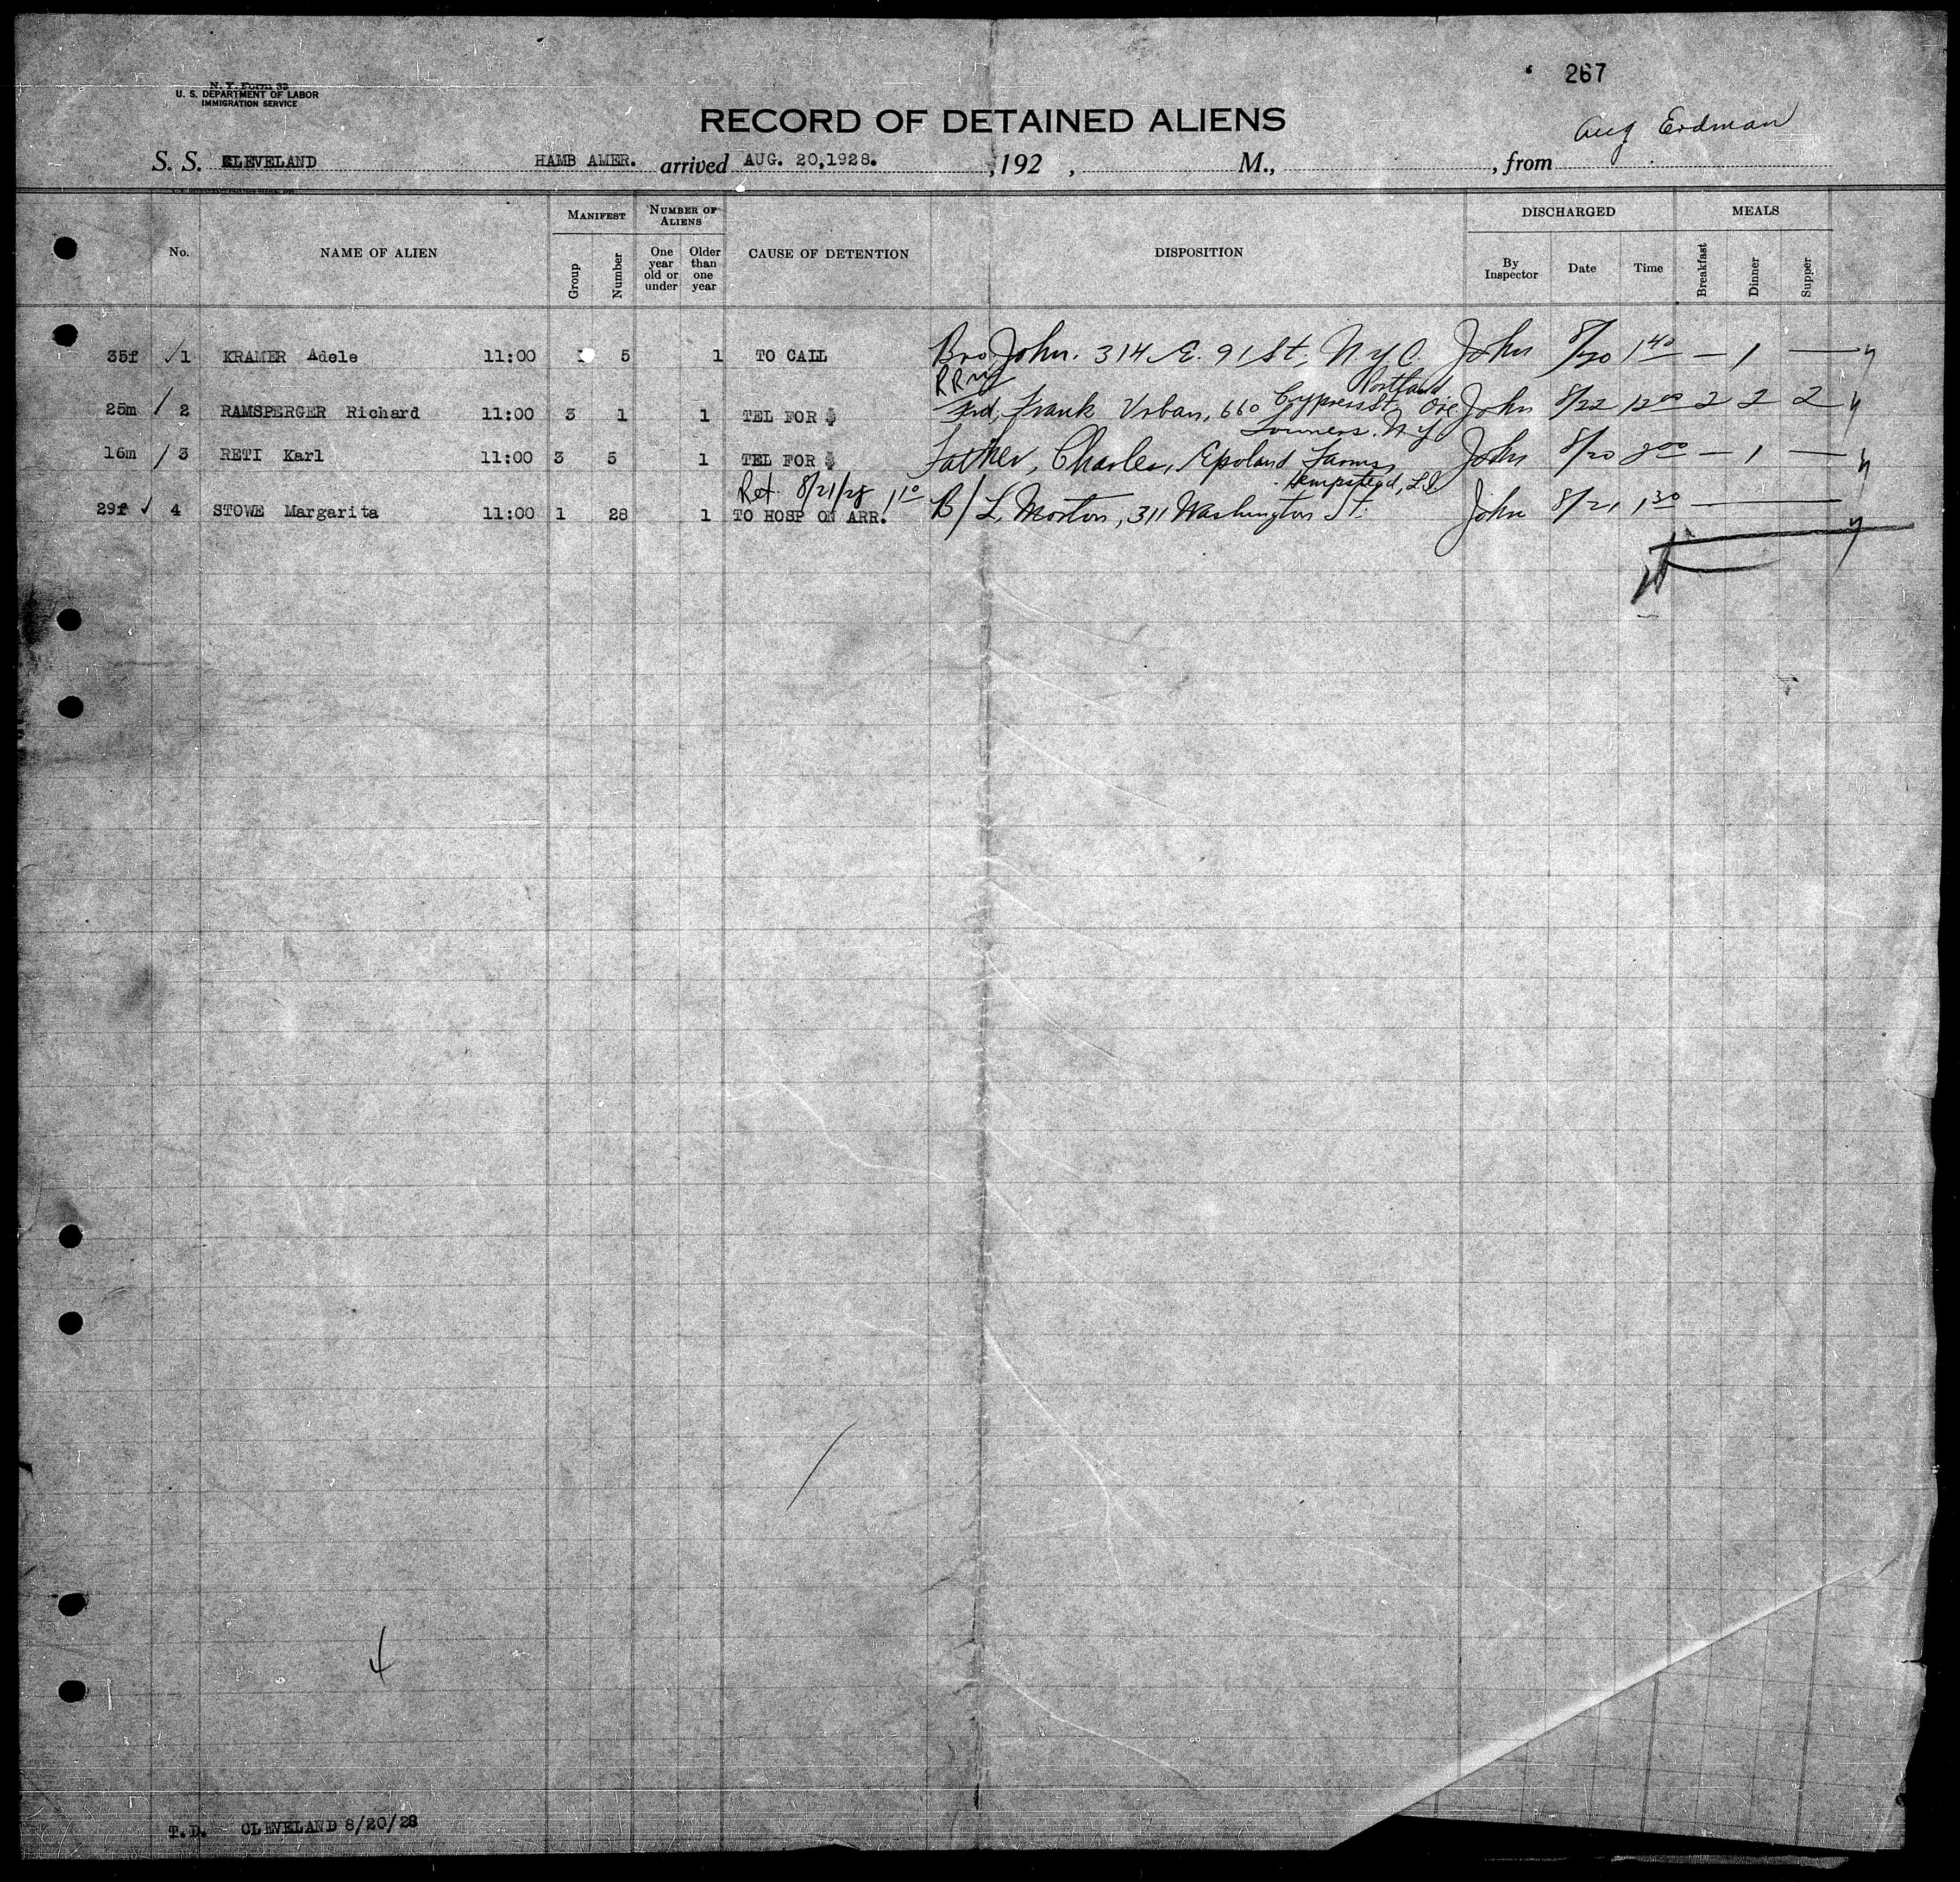 267
N. Y. Form 32
U. S. DEPARTMENT OF LABOR
IMMIGRATION SERVICE
RECORD OF DETAINED ALIENS
Aug Erdman
S. S. CLEVELAND HAMB AMER. arrived AUG. 20,1928. ,192 , M., , from
No. NAME OF ALIEN MANIFEST Group Number NUMBER OF ALIENS One year old or under Older than one year CAUSE OF DETENTION DISPOSITION DISCHARGED By Inspector Date Time MEALS Breakfast Dinner Supper
35f √ 1 KRAMER Adele 11:00 5 1 TO CALL Bro John. 314 E. 91 St. N.Y.C. John 8/20 1 40 — 1 —
Portland
25m / 2 RAMSPERGER Richard 11:00 3 1 1 TEL FOR $ Frd, Frank Urban, 660 Cypress St Ore John 8/22 12 00 2 2 2
N.Y.
16m / 3 RETI Karl 11:00 3 5 1 TEL FOR $ Father, Charles, Farms, John 8/20 — 1 —
Ret. 8/21/28 1 10 Hempstead, L.I.
29f √ 4 STOWE Margarita 11:00 1 28 1 TO HOSP ON ARR. B/L, Morton, 311 Washington St. John 8/21 1 30 —
T.D. CLEVELAND 8/20/28